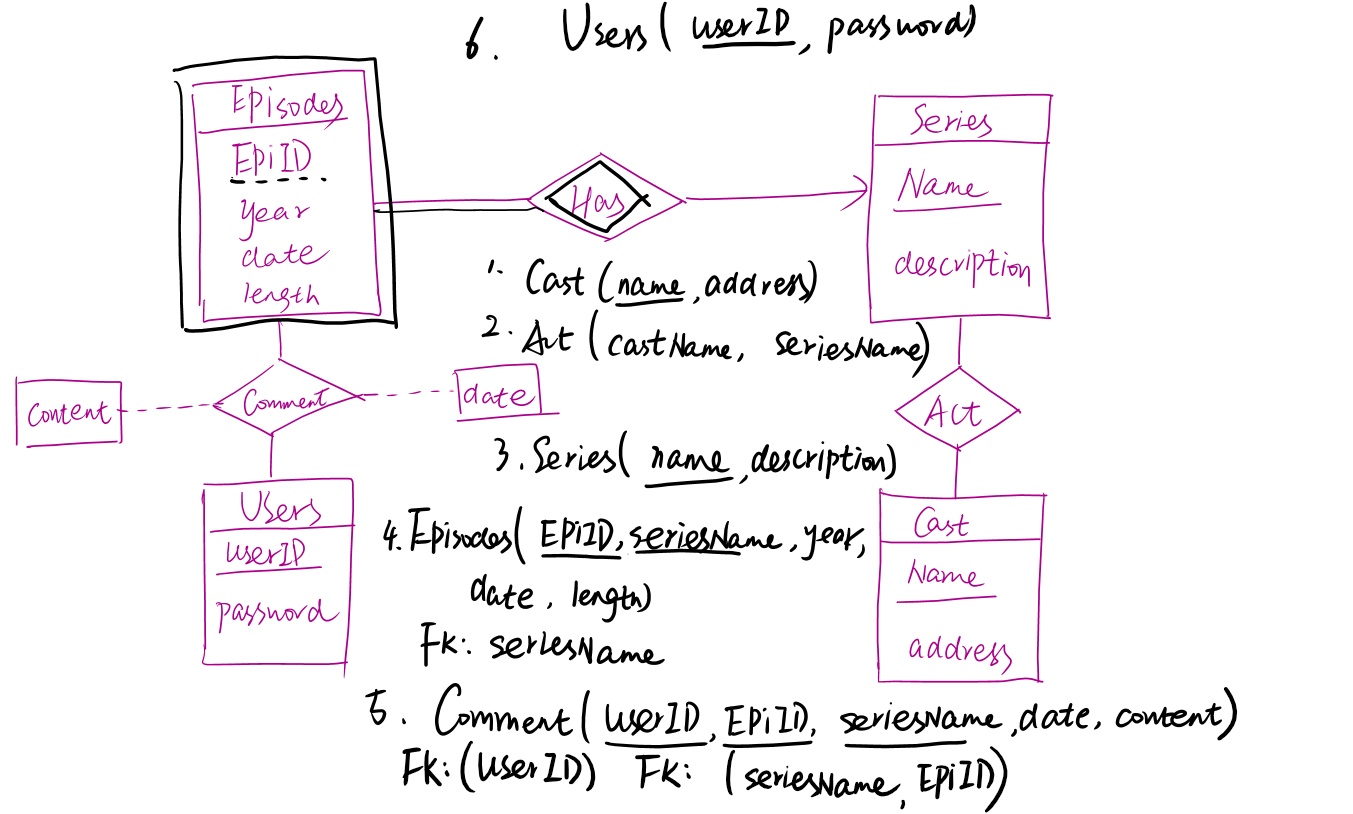 6. Users ( userID, password)
Episodes
EpiID
year
date
length
Has
Series
Name
description
1. Cast (name, address)
2. Act (castName, seriesName)
content
Comment
date
Act
3. Series( name, description)
Users
userID
password
Cast
Name
address
4. Episodes( EPiID, seriesName, year,
date, length)
FK: seriesName
5. Comment( userID, EPiID, seriesName, date, content)
FK: (userID) FK: (seriesName, EPiID)